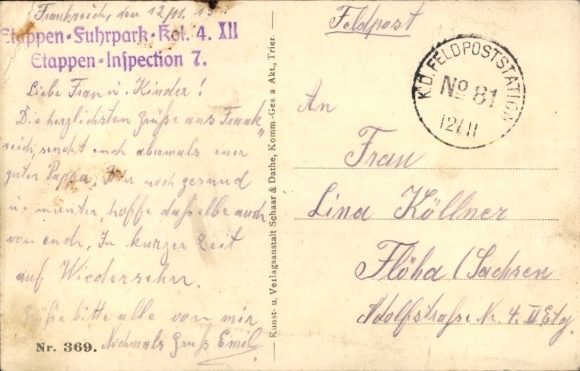 Frankreich, den 12/11. 15
Etappen-Fuhrpark-Kol. 4. XII
Etappen-Inspection 7.
Liebe Frau u. Kinder!
Die herzlichsten Grüße aus Frank
reich, sendet euch abermals euer
guter Pappa, Bin noch gesund
u. munter hoffe dasselbe auch
von euch. In kurzer Zeit
auf Wiedersehn.
Grüße bitte alle von mir
Nochmals Gruß Emil
Nr. 369.
Kunst- u. Verlagsanstalt Schaar & Dathe, Komm.-Ges. a. Akt., Trier.
Feldpost
K.D. FELDPOSTSTATION
No 81
12/11
An
Frau
Lina Köllner
Flöha (Sachsen
Adolfstraße Nr. 4. II Etg.